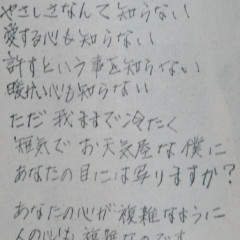 やさしさなんて知らない
愛する心も知らない
許すという事を知らない
暖かい心も知らない
ただ我ままで冷たく
短気でお天気屋な僕に
あなたの目には写りますか?
あなたの心が複雑なように
人の心も複雑なのです